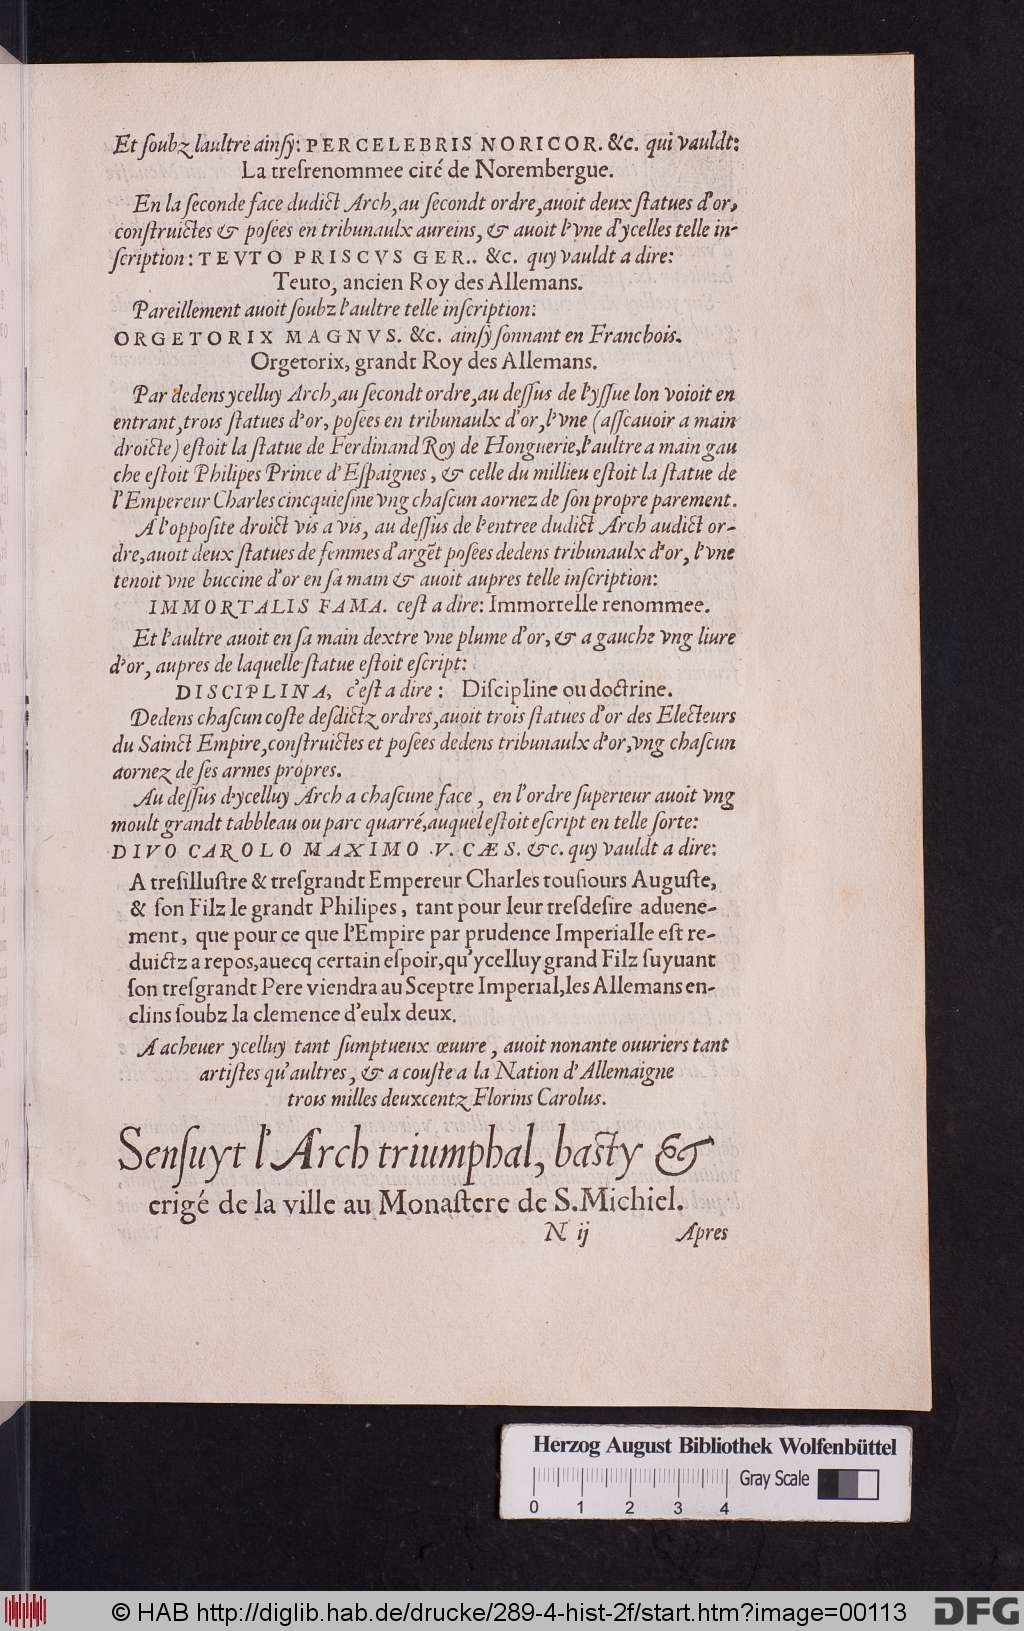 Et ſoubz laultre ainſy: PERCELEBRIS NORICOR. &c. qui vauldt:
La treſrenommee cité de Norembergue.
En la ſeconde face dudict Arch, au ſecondt ordre, auoit deux ſtatues d'or,
conſtruictes & poſées en tribunaulx aureins, & auoit l'vne d'ycelles telle in-
ſcription: TEVTO PRISCVS GER.. &c. quy vauldt a dire:
Teuto, ancien Roy des Allemans.
Pareillement auoit ſoubz l'aultre telle inſcription:
ORGETORIX MAGNVS. &c. ainſy ſonnant en Franchois.
Orgetorix, grandt Roy des Allemans.
Par dedens ycelluy Arch, au ſecondt ordre, au deſſus de l'yſſue lon voioit en
entrant, trois ſtatues d'or, poſees en tribunaulx d'or, l'vne (aſſcauoir a main
droicte) eſtoit la ſtatue de Ferdinand Roy de Honguerie, l'aultre a main gau
che eſtoit Philipes Prince d'Eſpaignes, & celle du millieu eſtoit la ſtatue de
l'Empereur Charles cincquieſme vng chaſcun aornez de ſon propre parement.
A l'oppoſite droict vis a vis, au deſſus de l'entree dudict Arch audict or-
dre, auoit deux ſtatues de femmes d'argẽt poſées dedens tribunaulx d'or, l'vne
tenoit vne buccine d'or en ſa main & auoit aupres telle inſcription:
IMMORTALIS FAMA. ceſt a dire: Immortelle renommee.
Et l'aultre auoit en ſa main dextre vne plume d'or, & a gauche vng liure
d'or, aupres de laquelle ſtatue eſtoit eſcript:
DISCIPLINA, c'eſt a dire: Diſcipline ou doctrine.
Dedens chaſcun coſte deſdictz ordres, auoit trois ſtatues d'or des Electeurs
du Sainct Empire, conſtruictes et poſees dedens tribunaulx d'or, vng chaſcun
aornez de ſes armes propres.
Au deſſus d'ycelluy Arch a chaſcune face, en l'ordre ſuperieur auoit vng
moult grandt tabbleau ou parc quarré, auquel eſtoit eſcript en telle ſorte:
DIVO CAROLO MAXIMO .V. CÆS. &c. quy vauldt a dire:
A treſilluſtre & treſgrandt Empereur Charles touſiours Auguſte,
& ſon Filz le grandt Philipes, tant pour leur treſdeſire aduene-
ment, que pour ce que l'Empire par prudence Imperialle eſt re-
duictz a repos, auecq certain eſpoir, qu'ycelluy grand Filz ſuyuant
ſon treſgrandt Pere viendra au Sceptre Imperial, les Allemans en-
clins ſoubz la clemence d'eulx deux.
A acheuer ycelluy tant ſumptueux œuure, auoit nonante ouuriers tant
artiſtes qu'aultres, & a couſte a la Nation d'Allemaigne
trois milles deuxcentz Florins Carolus.
Senſuyt l'Arch triumphal, baſty &
erigé de la ville au Monaſtere de S. Michiel.
N ij Apres
Herzog August Bibliothek Wolfenbüttel
Gray Scale
0 1 2 3 4
© HAB http://diglib.hab.de/drucke/289-4-hist-2f/start.htm?image=00113
DFG